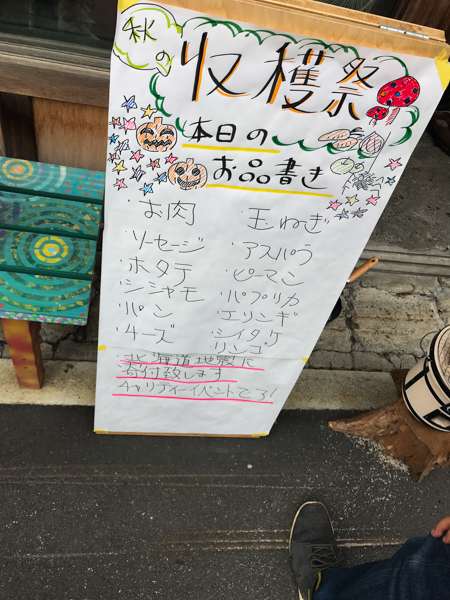 秋の
収穫祭
本日の
お品書き
・お肉
・ソーセージ
・ホタテ
・シシャモ
・パン
・チーズ
・玉ねぎ
・アスパラ
・ピーマン
・パプリカ
・エリンギ
・シイタケ
リンゴ
北海道地震に
寄付致します
チャリティーイベントです!